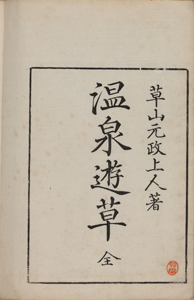 草山元政上人著
温泉遊草 全